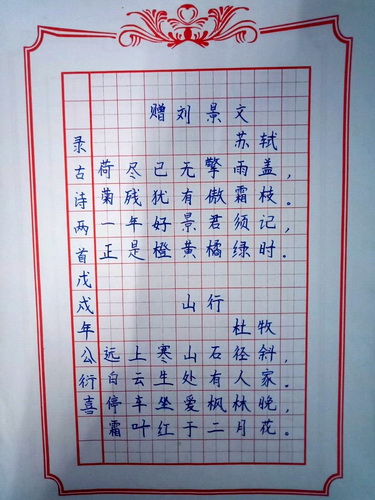 赠刘景文
苏轼
荷尽已无擎雨盖，
菊残犹有傲霜枝。
一年好景君须记，
正是橙黄橘绿时。
山行
杜牧
远上寒山石径斜，
白云生处有人家。
停车坐爱枫林晚，
霜叶红于二月花。
录古诗两首戊戌年公衍喜